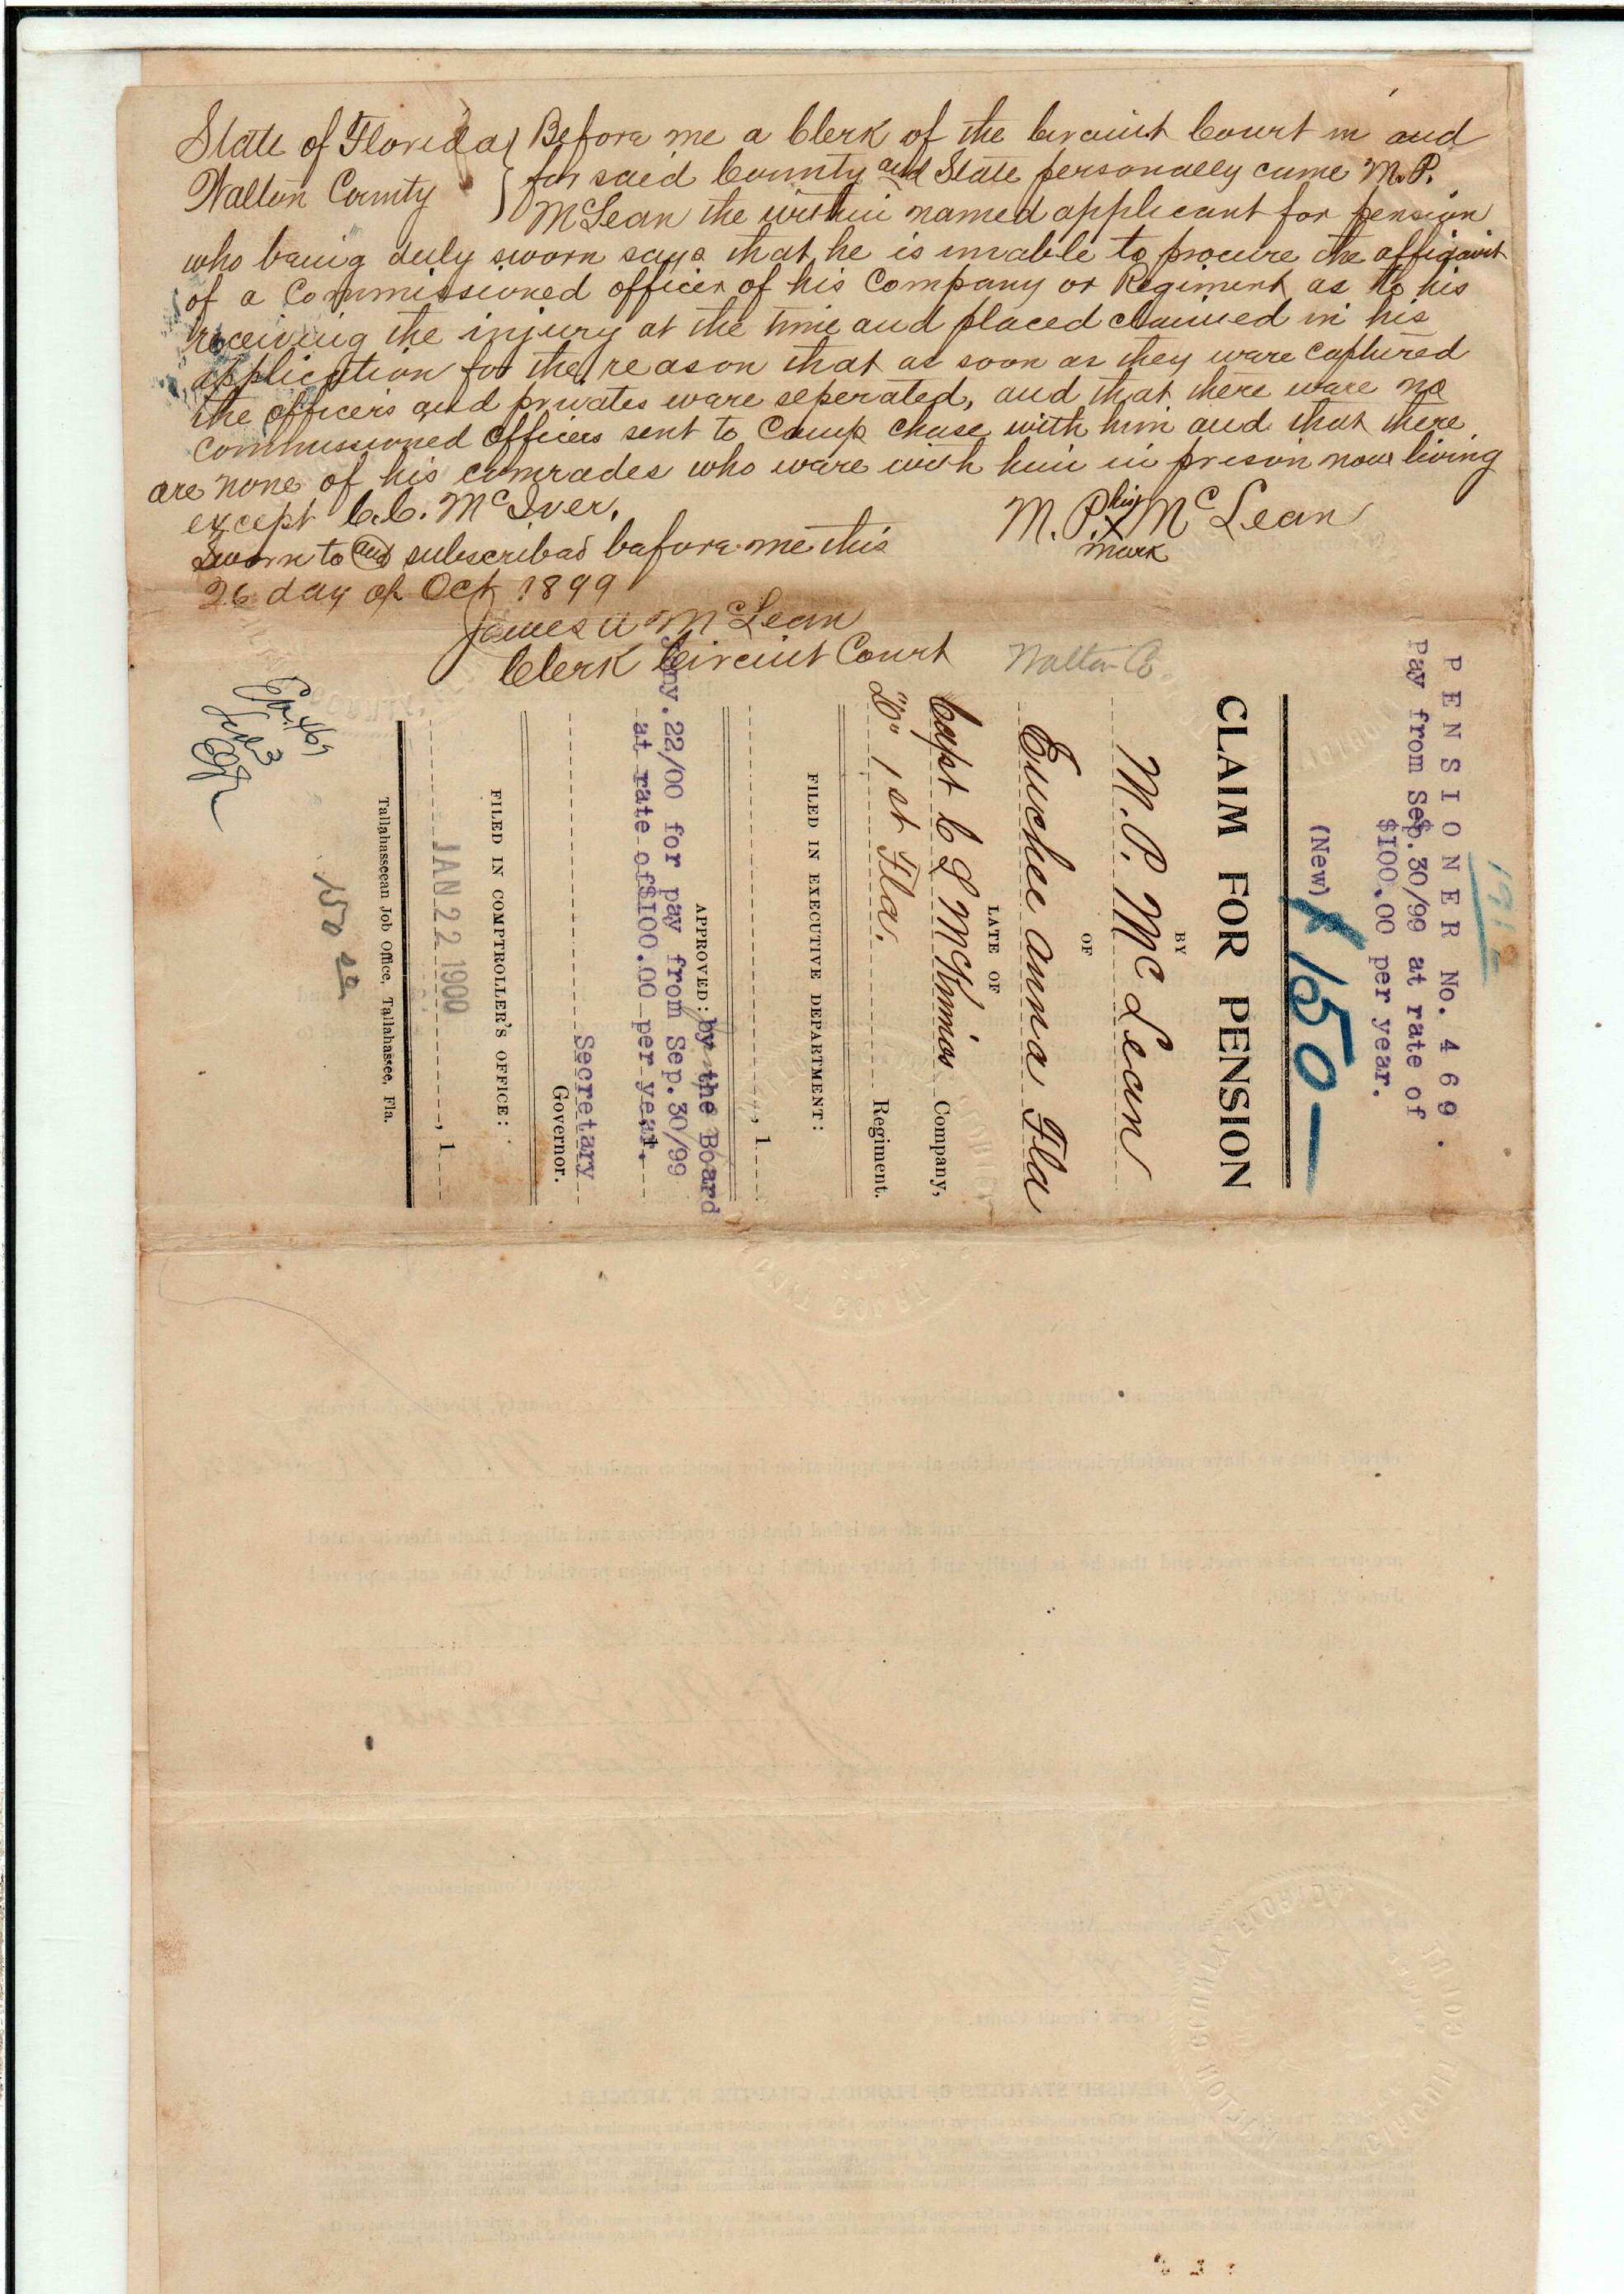 State of Florida } Before me a Clerk of the Circuit Court in and
Walton County } for said County and State personally came M.P.
McLean the within named applicant for pension
who being duly sworn says that he is unable to procure the affidavit
of a Commissioned officer of his Company or Regiment as to his
receiving the injury at the time and placed claimed in his
application for the reason that as soon as they ware captured
the officers and privates ware seperated, and that there ware no
commissioned officers sent to Camp Chase with him and that there
are none of his comrades who ware with him in prison now living
except C.C. McIver.
M. P. his X McLean
mark
Sworn to and subscribed before me this
26 day of Oct 1899
James A McLean
Clerk Circuit Court
Walton Co.
1912
PENSIONER No. 469.
Pay from Sep. 30/99 at rate of
$100.00 per year.
(New) 150—
CLAIM FOR PENSION
BY
M. P. McLean
OF
Euchee anna Fla
LATE OF
Capt C L McKinnios Company,
"D" 1st Fla. Regiment.
FILED IN EXECUTIVE DEPARTMENT:
, 1
APPROVED: by the Board
Jany. 22/00 for pay from Sep. 30/99
at rate of $100.00 per year.
Secretary
Governor.
FILED IN COMPTROLLER'S OFFICE:
JAN 22 1900 , 1
Tallahasseean Job Office, Tallahassee, Fla.
150
COURT
WALTON COUNTY FLORIDA
CIRCUIT COURT